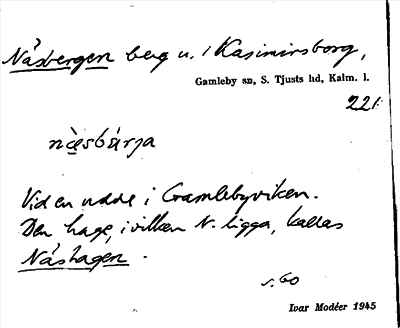 Näsbergen berg u. / Kasimirsborg,
Gamleby sn, S. Tjusts hd, Kalm. l.
221
næ̀sbárja
Vid en udde i Gamlebyviken.
Den hage, i vilken N. ligga, kallas
Näshagen.
s. 60
Ivar Modéer 1945